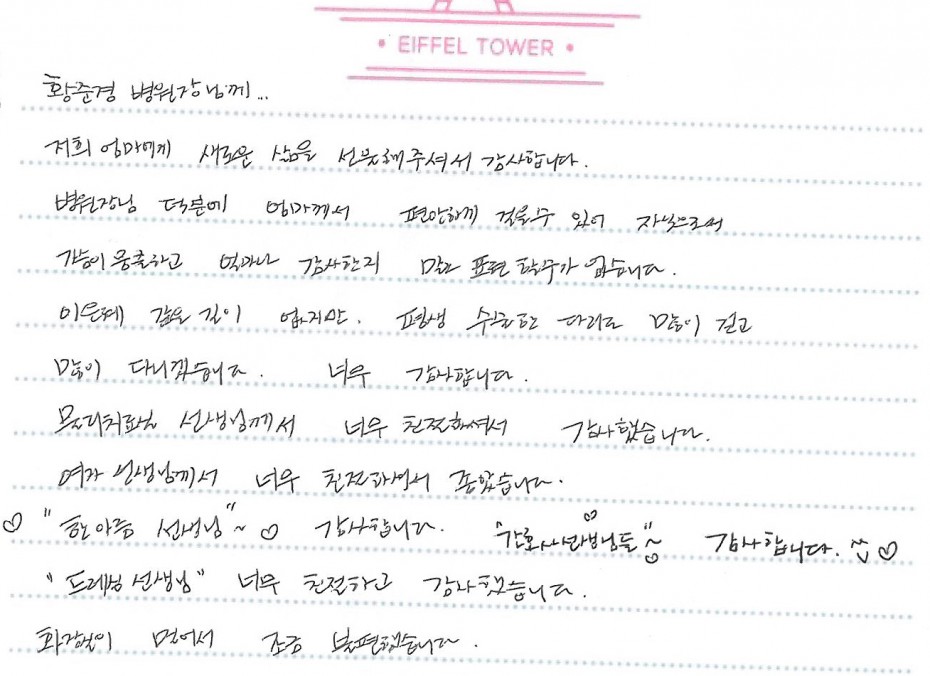 • EIFFEL TOWER •
황준경 병원장님께...
저희 엄마에게 새로운 삶을 선물해주셔서 감사합니다.
병원장님 덕분에 엄마께서 편안하게 걸을수 있어 자식으로써
가슴이 뭉클하고 얼마나 감사한지 말로 표현 할수가 없습니다.
이은혜 갚을 길이 없지만. 평생 수술한 다리로 많이 걷고
많이 다니겠습니다. 너무 감사합니다.
물리치료실 선생님께서 너무 친절하셔서 감사했습니다.
여자 선생님께서 너무 친절하셔서 좋았습니다.
♡ "한아름 선생님"~ ♡ 감사합니다. "간호사선생님들"~ ♡ 감사합니다. ^^ ♡
"드레싱 선생님" 너무 친절하고 감사했습니다.
화장실이 멀어서 조금 불편했습니다.